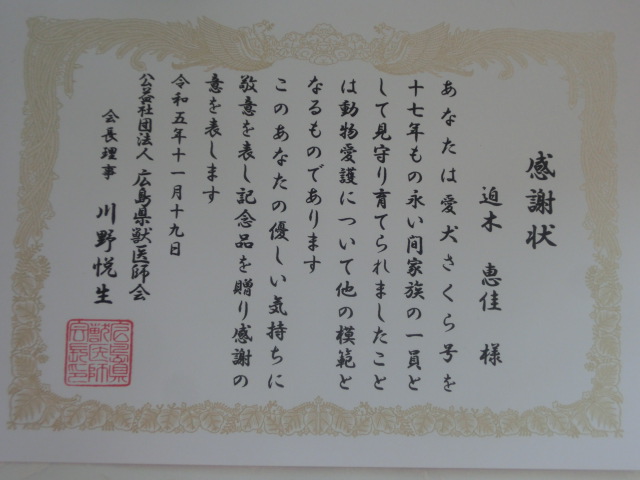 感謝状
迫木 恵佳 様
あなたは愛犬さくら号を
十七年もの永い間家族の一員と
して見守り育てられましたこと
は動物愛護について他の模範と
なるものであります
このあなたの優しい気持ちに
敬意を表し記念品を贈り感謝の
意を表します
令和五年十一月十九日
公益社団法人 広島県獣医師会
会長理事 川野悦生
広島県
獣医師
会長印